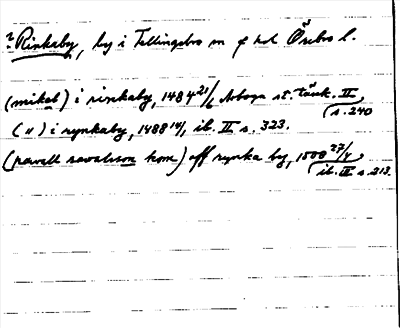 ? Rinkaby, by i Fellingsbro sn o hd Örebro l.
(mikal) i rinkaby, 1484 21/6 Arboga st. tänk. II, s. 240
( " ) i rynkaby, 1488 14/1, ib. II s. 323.
(pawall rawalsson kom) aff rynka by, 1500 27/4, ib. III s. 213.